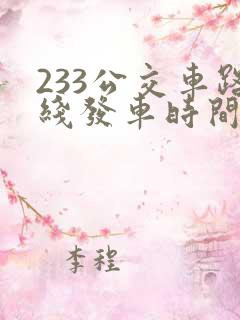 233公交車路
綫發車時間
李程